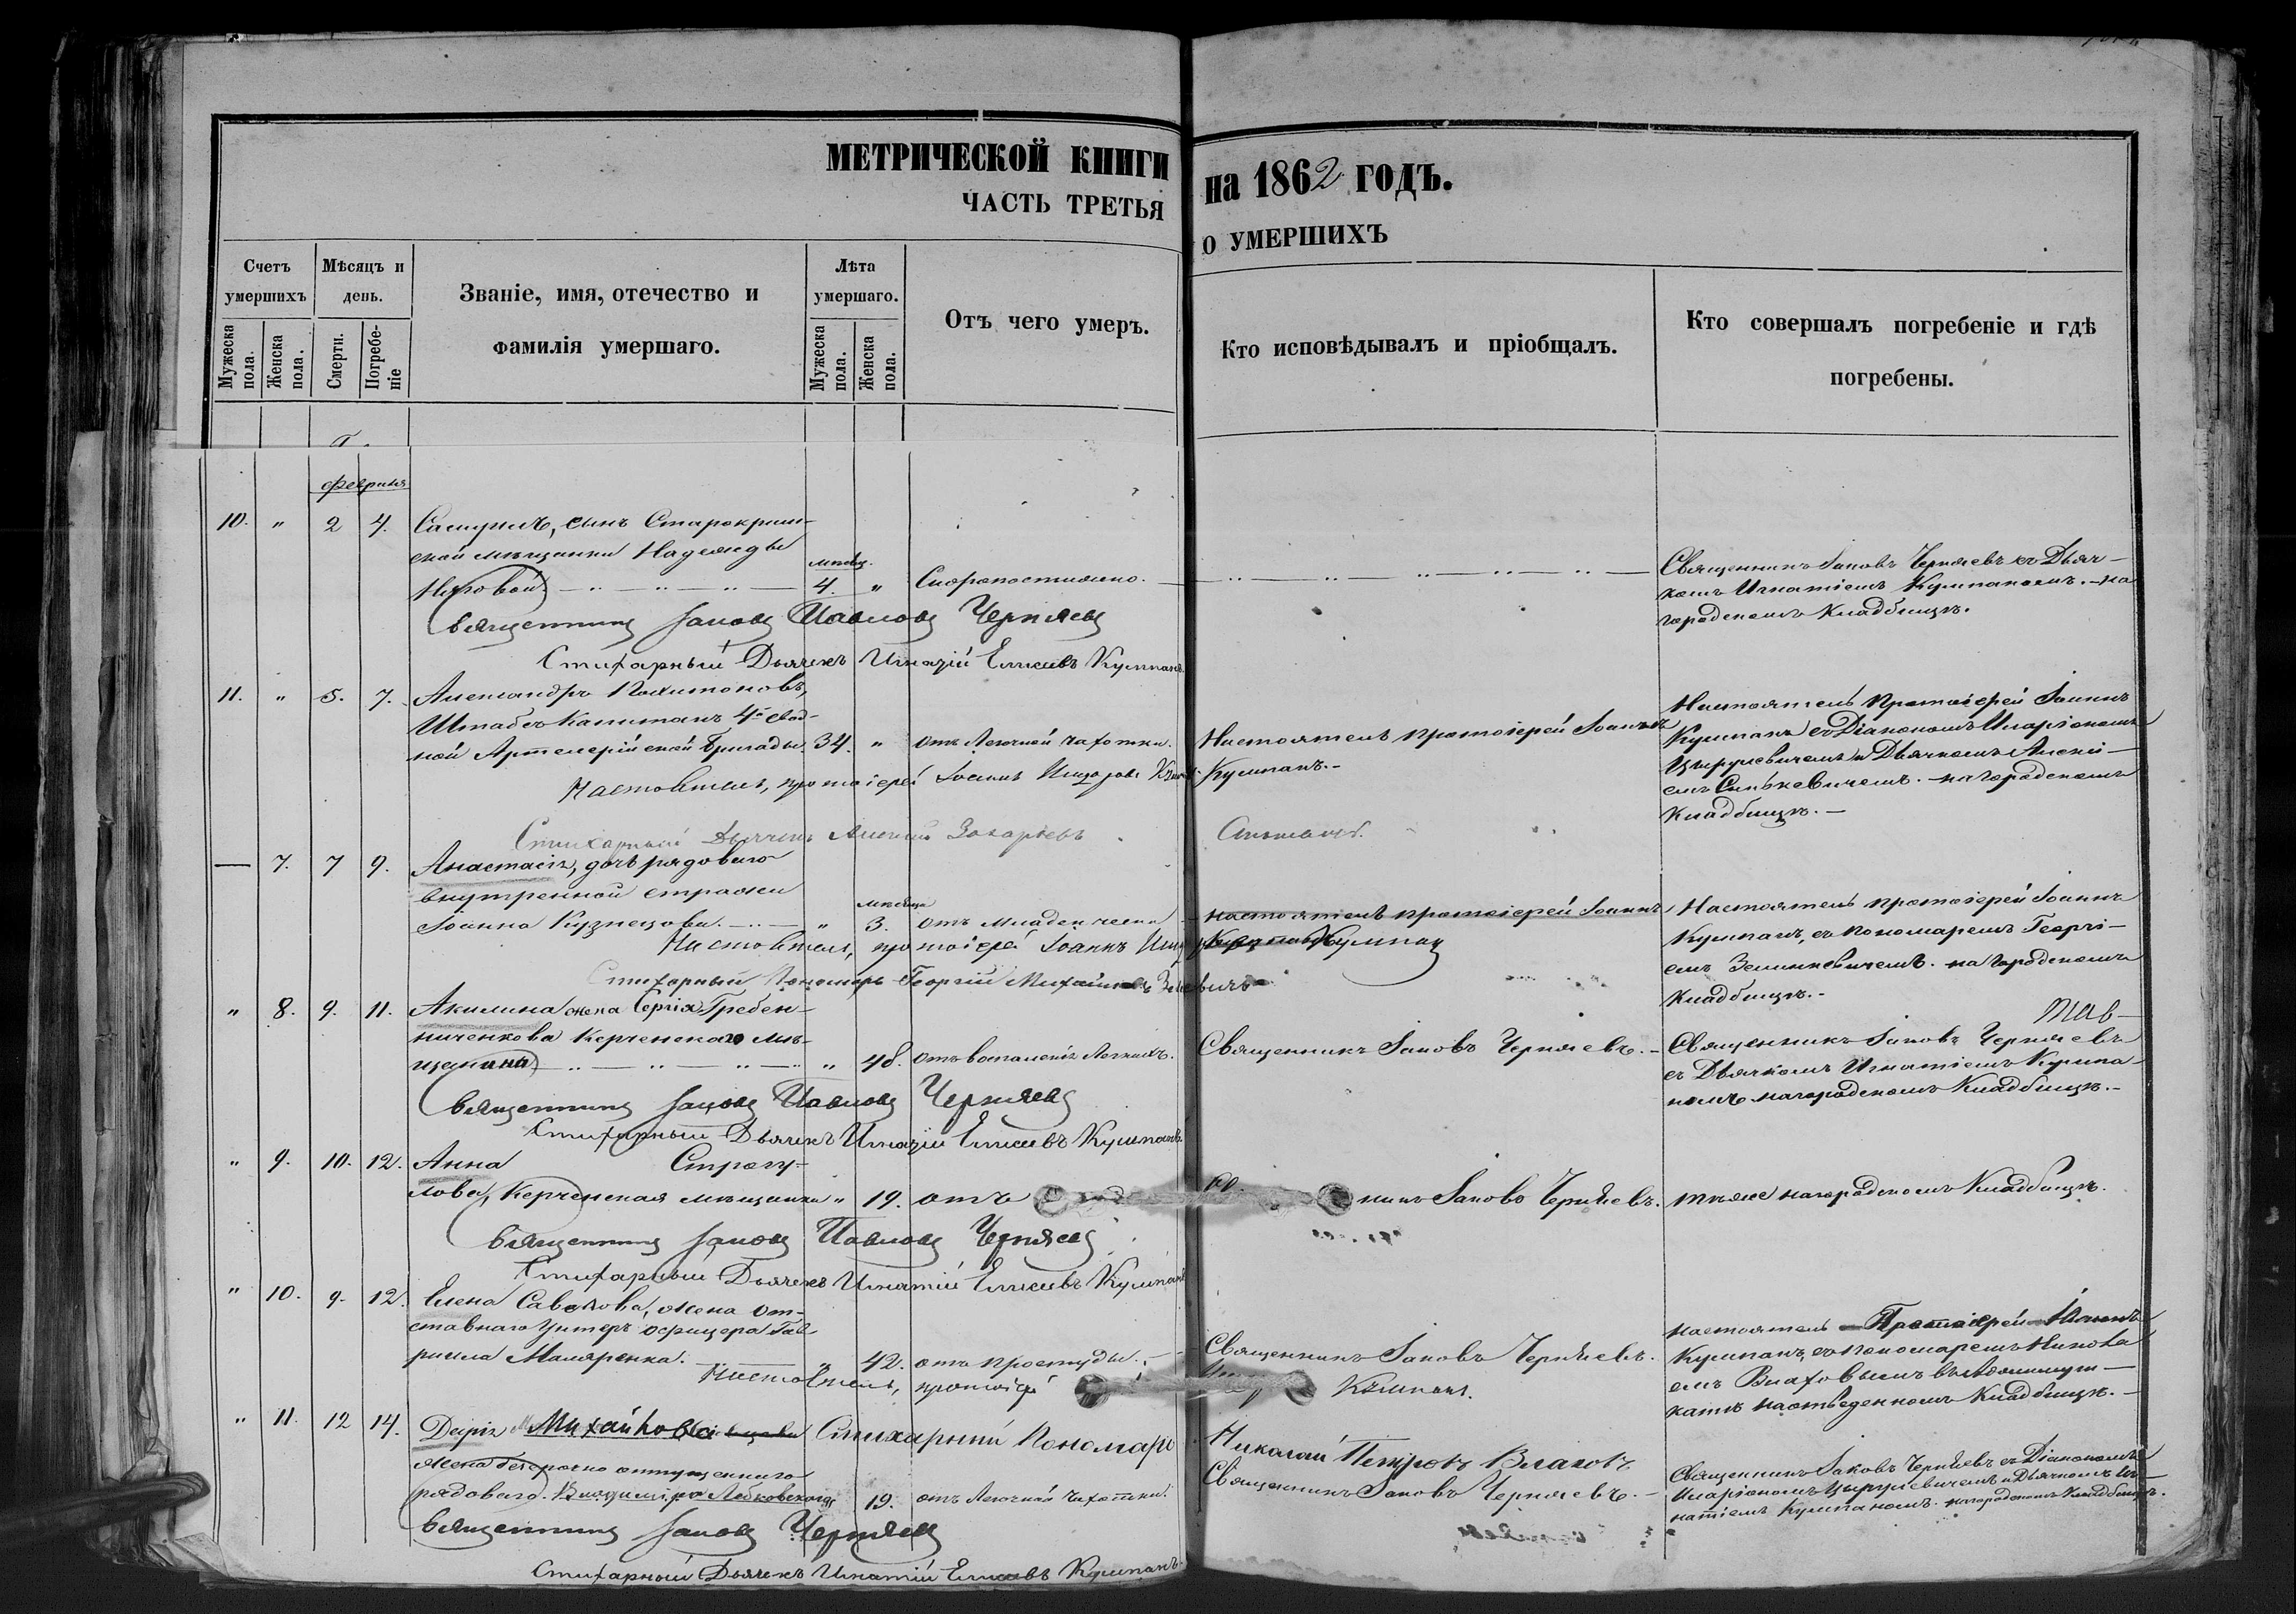 МЕТРИЧЕСКОЙ КНИГИ на 1862 ГОДЪ.
ЧАСТЬ ТРЕТЬЯ о УМЕРШИХЪ
Счетъ умершихъ
Мужеска пола.
Женска пола.
Мѣсяцъ и день.
Смерти.
Погребеніе
Званіе, имя, отечество и фамилія умершаго.
Лѣта умершаго.
Мужеска пола.
Женска пола.
Отъ чего умеръ.
Кто исповѣдывалъ и пріобщалъ.
Кто совершалъ погребеніе и гдѣ погребены.
февраля
10. " 2 4. Самуилъ, сынъ Старокрым-
ской мѣщанки Надежды
мѣсяц.
4. " Скоропостижно.
Священникъ Іаковъ Черняевъ съ Дьяч-
комъ Игнатіемъ Кушпаномъ. на
городскомъ Кладбищѣ.
Священникъ Іаковъ Павловъ Черняевъ
Стихарный Дьячекъ Игнатій Елисеевъ Кушпанъ
11. " 5. 7. Александръ Пахитоновъ,
Штабсъ Капитанъ 4й свод-
ной Артелерійской Бригады. 34. " отъ Легочной чахотки.
Настоятель протоіерей Іоаннъ
Кушпанъ.
Настоятель Протоіерей Іоаннъ
Кушпанъ съ Діакономъ Иларіономъ
Цыруевичемъ и Дьячкомъ Алексі-
емъ Синькевичемъ. на городскомъ
Кладбищѣ.
Настоятель, протоіерей Іоаннъ
Стихарный Дьячекъ Алексій Захарьевъ
7. 7 9. Анастасія, дочь рядоваго
внутренной стражи
Іоанна Кузнецова. " мѣсяца 3. отъ Младенческа
настоятель протоіерей Іоаннъ
Кушпанъ
Настоятель протоіерей Іоаннъ
Кушпанъ, съ пономаремъ Георгі-
емъ Зелинкевичемъ. на городскомъ
Кладбищѣ.
Настоятель, протоіерей Іоаннъ
Стихарный Пономарь Георгій Михайловъ
" 8. 9. 11. Акилина жена Сергія Гребен-
ниченкова Керченскаго мѣ-
щанина " 48. отъ воспаленія Легкихъ.
Священникъ Іаковъ Черняевъ.
Священникъ Іаковъ Черняевъ
съ Дьячкомъ Игнатіемъ Кушпа-
номъ на городскомъ Кладбищѣ.
Священникъ Іаковъ Павловъ Черняевъ
Стихарный Дьячекъ Игнатій Елисеевъ Кушпанъ
" 9. 10. 12. Анна Строгу-
лова, Керченская мѣщанка " 19. отъ
никъ Іаковъ Черняевъ.
тѣже на городскомъ Кладбищѣ.
Священникъ Іаковъ Павловъ Черняевъ
Стихарный Дьячекъ Игнатій Елисеевъ Кушпанъ
" 10. 9. 12. Елена Савелова, жена от-
ставнаго Унтеръ офицера Гав-
риила Маляренка. " 42. отъ простуды.
Священникъ Іаковъ Черняевъ.
настоятель Протоіерей Іоаннъ
Кушпанъ, съ пономаремъ Никола
емъ Влаховымъ
на отведенномъ Кладбищѣ.
Настоятель, протоіер
Кушпанъ.
Стихарный Пономарь Николай Петровъ Влаховъ
" 11. 12 14. Дарія Михайлова
жена безсрочно отпущеннаго
рядоваго Владиміра " 19. отъ Легочной чахотки.
Священникъ Іаковъ Черняевъ.
Священникъ Іаковъ Черняевъ съ Діакономъ
Иларіономъ Цыруевичемъ и Дьячкомъ Иг-
натіемъ Кушпаномъ. на городскомъ Кладбищѣ.
Священникъ Іаковъ Черняевъ
Стихарный Дьячекъ Игнатій Елисеевъ Кушпанъ.